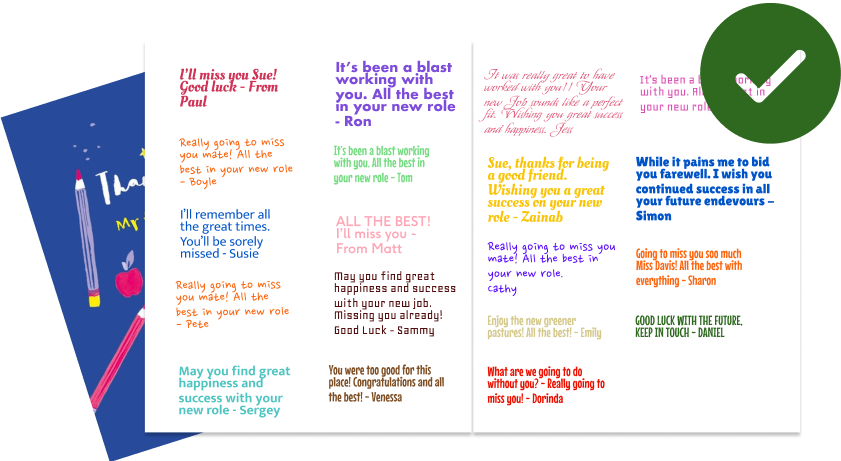 Than
Mr
I'll miss you Sue!
Good luck - From
Paul
Really going to miss
you mate! All the
best in your new role
- Boyle
I'll remember all
the great times.
You'll be sorely
missed - Susie
Really going to miss
you mate! All the
best in your new role
- Pete
May you find great
happiness and
success with your
new role - Sergey
It's been a blast
working with
you. All the best
in your new role
- Ron
It's been a blast working
with you. All the best in
your new role - Tom
ALL THE BEST!
I'll miss you -
From Matt
May you find great
happiness and success
with your new job.
Missing you already!
Good Luck - Sammy
You were too good for this
place! Congratulations and all
the best! - Venessa
It was really great to have
worked with you!! Your
new Job sounds like a perfect
fit. Wishing you great success
and happiness. Jess
Sue, thanks for being
a good friend.
Wishing you a great
success on your new
role - Zainab
Really going to miss you
mate! All the best in
your new role.
Cathy
Enjoy the new greener
pastures! All the best! - Emily
What are we going to do
without you? - Really going to
miss you! - Dorinda
It's been a
with you. All in
your new role
While it pains me to bid
you farewell. I wish you
continued success in all
your future endevours –
Simon
Going to miss you soo much
Miss Davis! All the best with
everything - Sharon
GOOD LUCK WITH THE FUTURE,
KEEP IN TOUCH - DANIEL